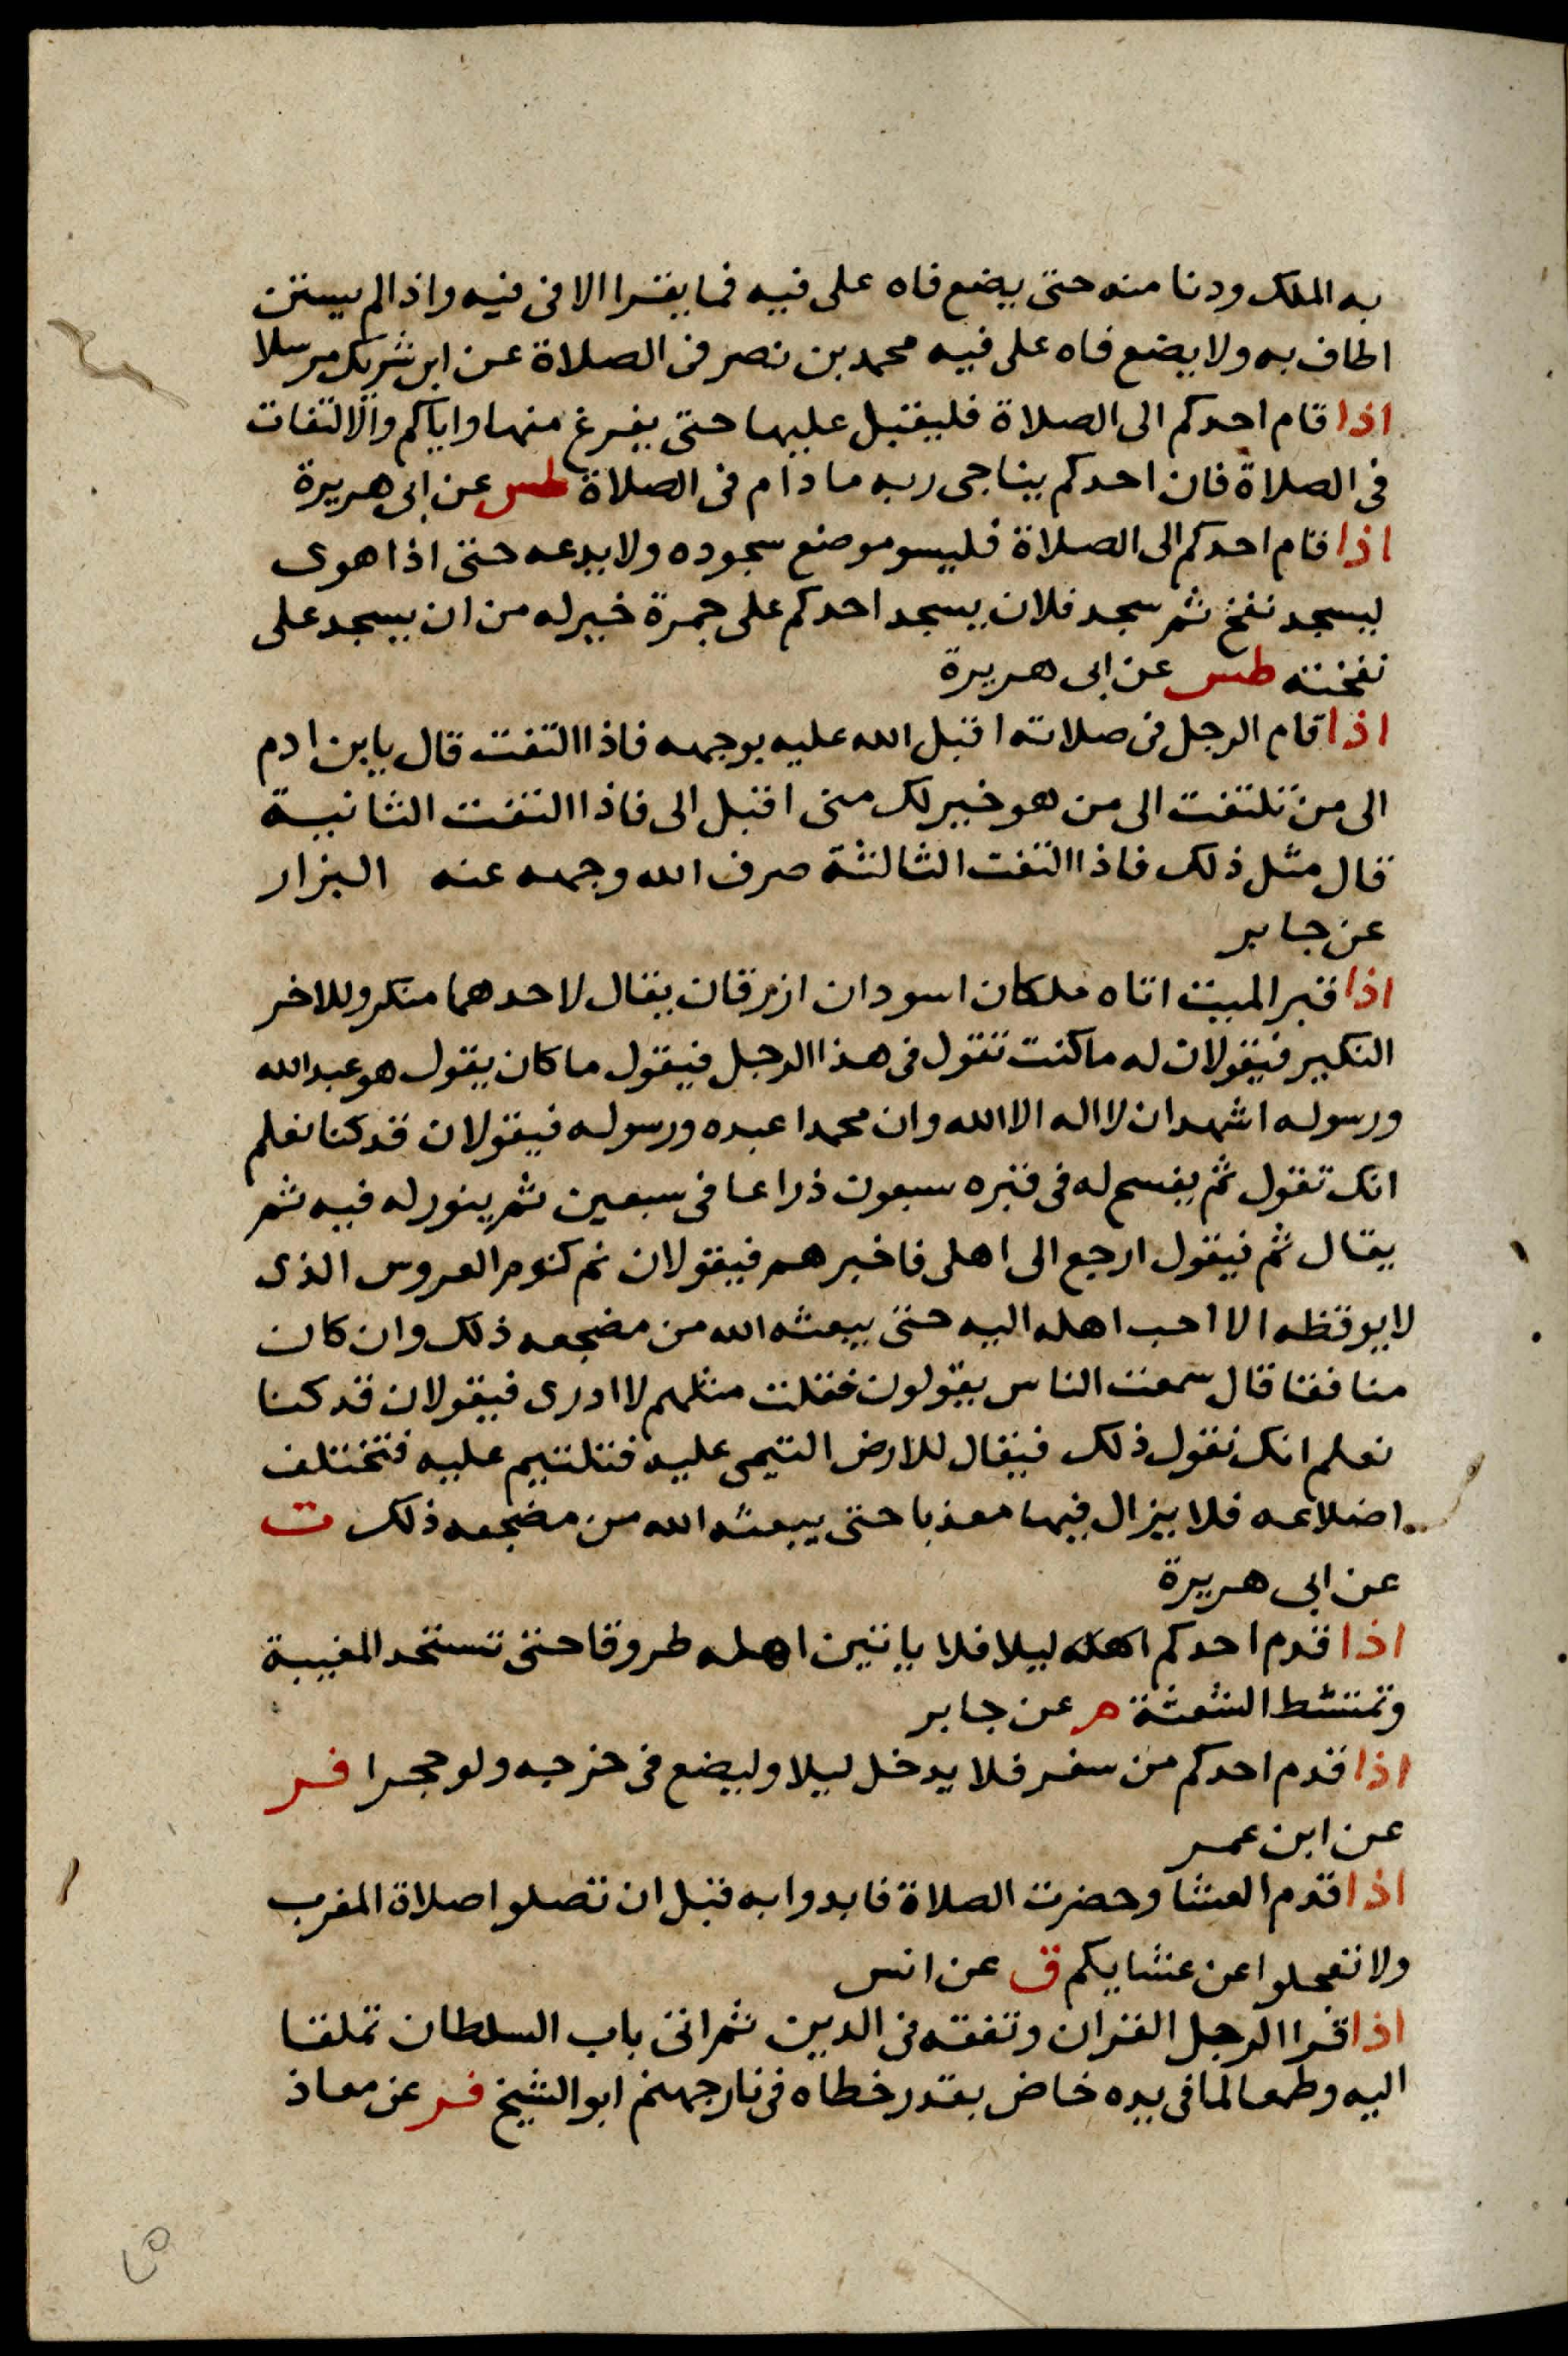 به الملك ودنا منه حتى يضع فاه على فيه فما يقرا الا فى فيه واذا لم يستن
اطاف به ولا يضع فاه على فيه محمد بن نصر فى الصلاة عن ابن شريك مرسلا
اذا قام احدكم الى الصلاة فليقبل عليها حتى يفرغ منها واياكم والالتفات
فى الصلاة فان احدكم يناجى ربه ما دام فى الصلاة طس عن ابى هريرة
اذا قام احدكم الى الصلاة فليسو موضع سجوده ولا يدعه حتى اذا هوى
ليسجد نفخ ثم سجد فلان يسجد احدكم على جمرة خير له من ان يسجد على
نفخته طس عن ابى هريرة
اذا قام الرجل فى صلاته اقبل الله عليه بوجهه فاذا التفت قال يابن ادم
الى من تلتفت الى من هو خير لك منى اقبل الى فاذا التفت الثانية
قال مثل ذلك فاذا التفت الثالثة صرف الله وجهه عنه البزار
عن جابر
اذا قبر الميت اتاه ملكان اسودان ازرقان يقال لاحدهما منكر وللاخر
النكير فيقولان له ما كنت تقول فى هذا الرجل فيقول ما كان يقول هو عبد الله
ورسوله اشهد ان لا اله الا الله وان محمدا عبده ورسوله فيقولان قد كنا نعلم
انك تقول ثم يفسح له فى قبره سبعون ذراعا فى سبعين ثم ينور له فيه ثم
يقال ثم فيقول ارجع الى اهلى فاخبرهم فيقولان نم كنوم العروس الذى
لا يوقظه الا احب اهله اليه حتى يبعثه الله من مضجعه ذلك وان كان
منافقا قال سمعت الناس يقولون فقلت مثلهم لا ادرى فيقولان قد كنا
نعلم انك تقول ذلك فيقال للارض التيمى عليه فتلتيم عليه فتختلف
اضلاعه فلا يزال فيها معذبا حتى يبعثه الله من مضجعه ذلك ت
عن ابى هريرة
اذا قدم احدكم اهله ليلا فلا ياتين اهله طروقا حتى تستحد المغيبة
وتمتشط الشعثة م عن جابر
اذا قدم احدكم من سفر فلا يدخل ليلا وليضع فى خرجه ولو حجرا فر
عن ابن عمر
اذا قدم العشا وحضرت الصلاة فابدوا به قبل ان تصلوا صلاة المغرب
ولا تعجلوا عن عشايكم ق عن انس
اذا قرا الرجل القران وتفقه فى الدين ثم اتى باب السلطان تملقا
اليه وطمعا لما فى يده خاض بقدر خطاه فى نار جهنم ابو الشيخ فر عن معاذ